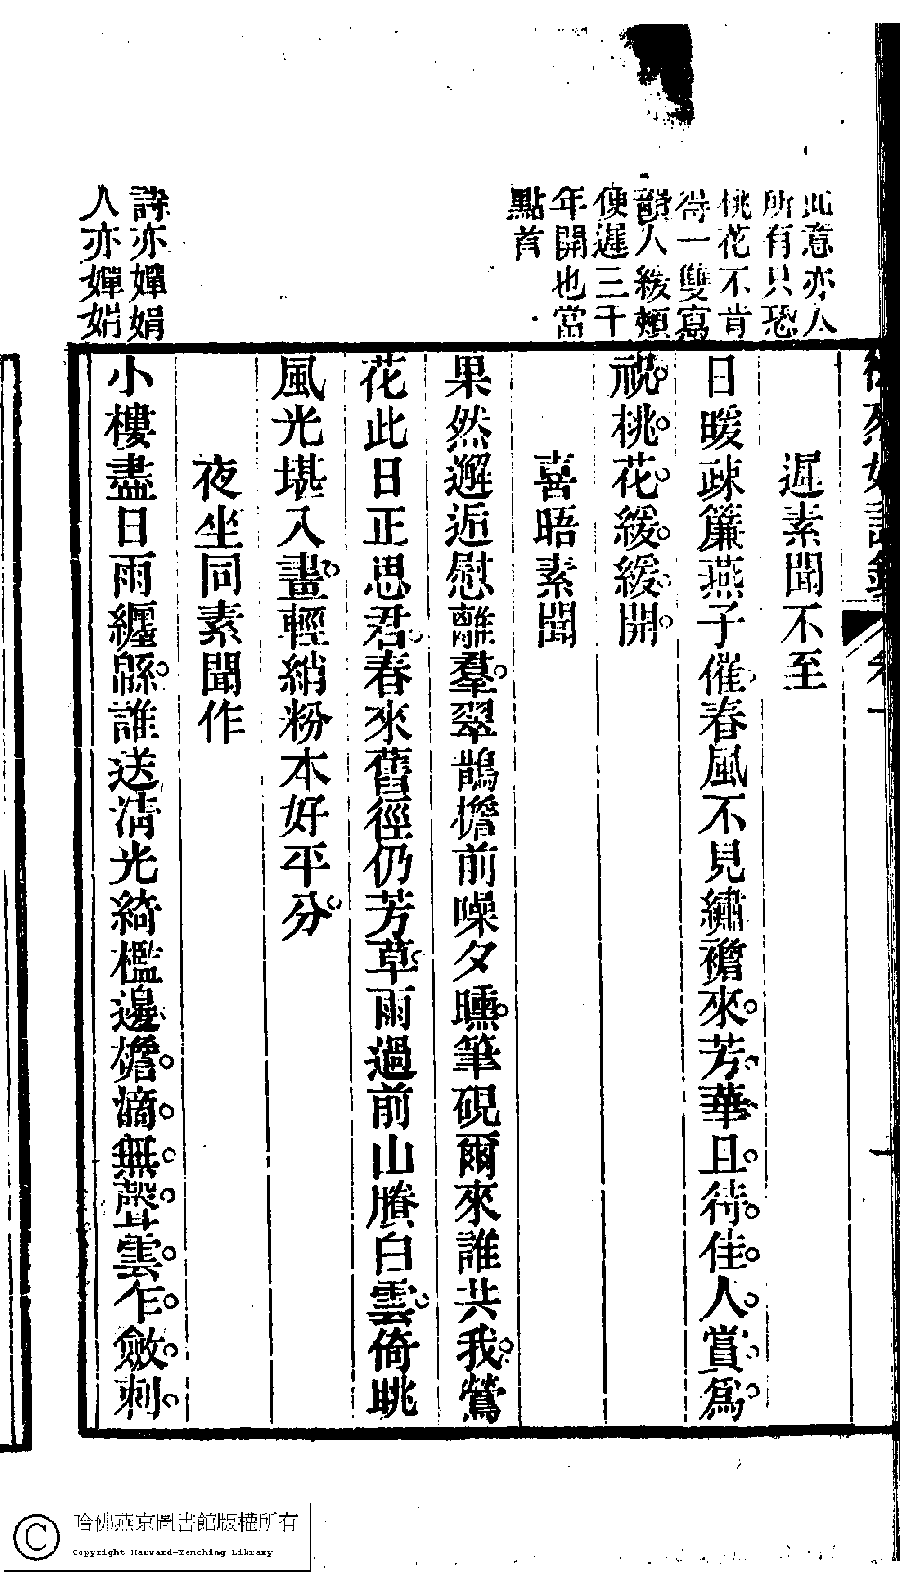 徐烈婦詩鈔 卷一 一
此意亦人
所有只恐
桃花不肯
得一雙寫
韻人緩頰
便遲三千
年開也當
點首
遲素聞不至
日暖疎簾燕子催春風不見繡襜來芳華且待佳人賞為
祝桃花緩緩開
喜晤素聞
果然邂逅慰離羣翠鵲檐前噪夕曛筆硯爾來誰共我鶯
花此日正思君春來舊徑仍芳草雨過前山賸白雲倚眺
風光堪入畫輕綃粉本好平分
詩亦嬋娟
人亦嬋娟
夜坐同素聞作
小樓盡日雨纏緜誰送清光綺檻邊檐滴無聲雲乍斂刺
哈佛燕京圖書館版權所有
Copyright Harvard-Yenching Library